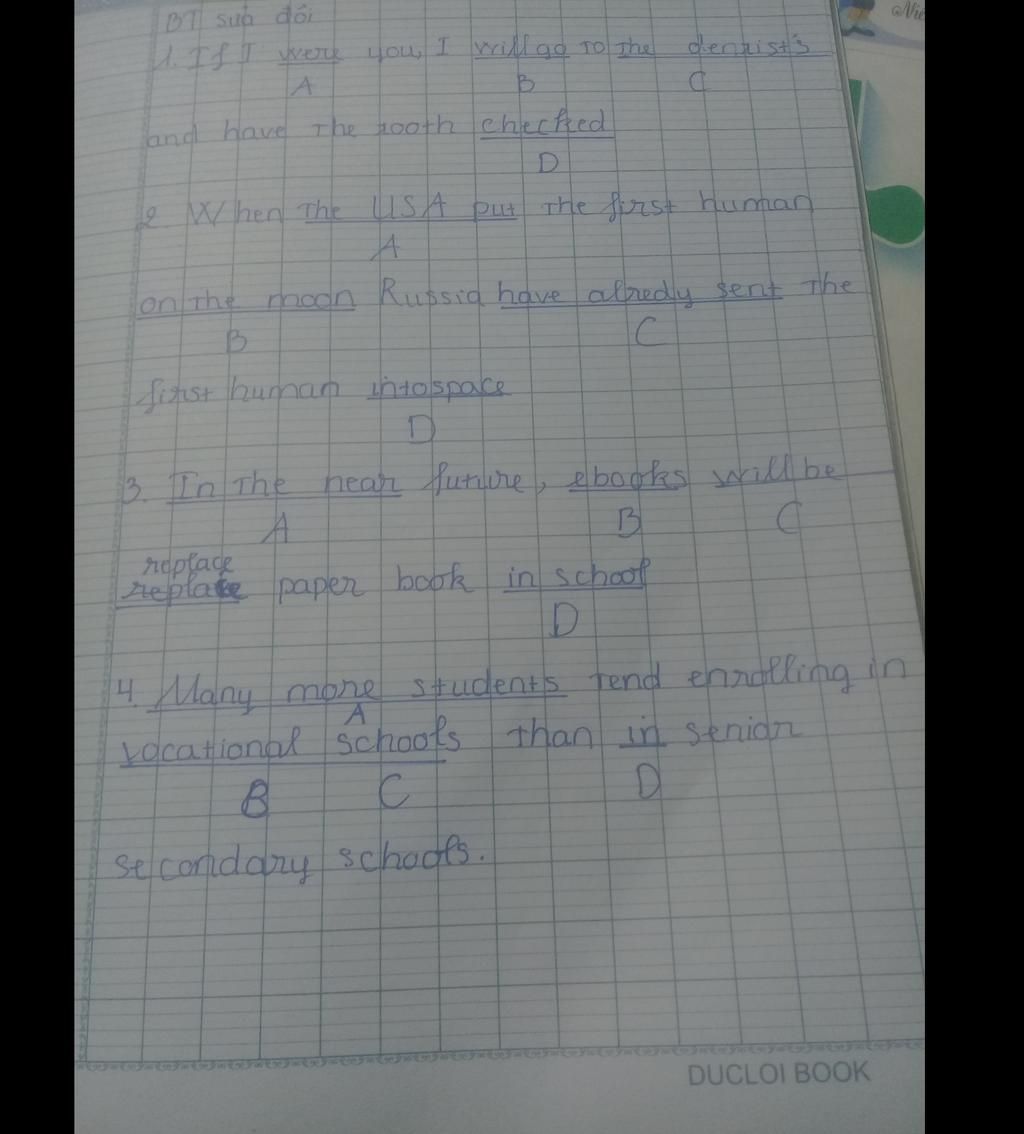 BT sửa đổi
1. If I were you, I will go to the dentist's
A B C
and have the tooth checked
D
2. When the USA put the first human
A
on the moon Russia have alredy sent the
B C
first human into space
D
3. In the near future, ebooks will be
A B C
replace
replace paper book in school
D
4. Many more students tend enrolling in
A
vocational schools than in senior
B C D
secondary schools.
DUCLOI BOOK